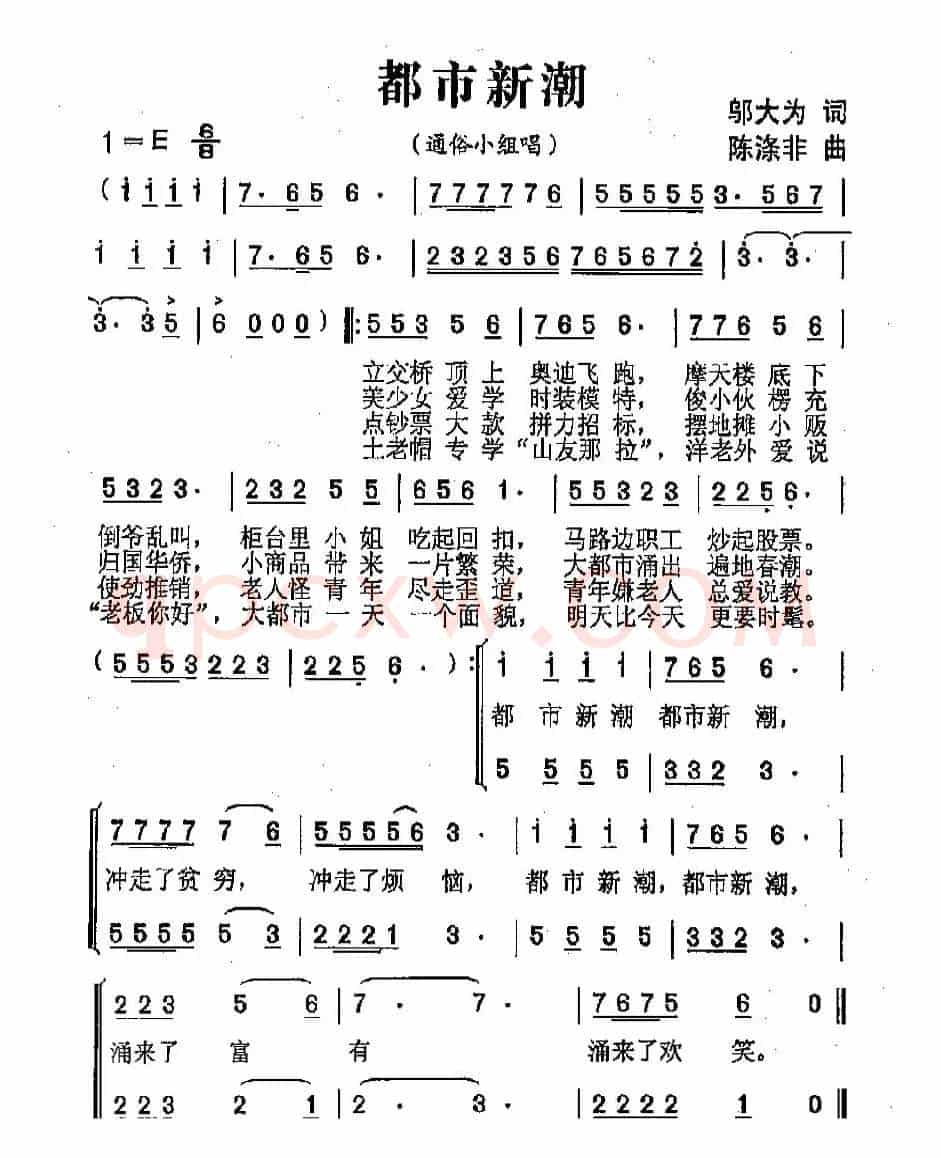 都市新潮
邬大为 词
1=E 6/8
(通俗小组唱)
陈涤非 曲
(i i i i | 7· 65 6· | 777776 | 555555 3· 567 |
i i i i | 7· 65 6· | 232356 765672 | 3· 3· |
3· 35 | 6 000) ‖: 553 5 6 | 765 6· | 776 5 6 |
立交桥 顶 上 奥迪飞 跑, 摩天楼 底 下
美少女 爱 学 时装模 特, 俊小伙 楞 充
点钞票 大 款 拼力招 标, 摆地摊 小 贩
土老帽 专 学 “山友那 拉”, 洋老外 爱 说
5323· | 232 5 5 | 656 1· | 55323 | 2256· |
倒爷乱叫, 柜台里 小 姐 吃起回 扣, 马路边职工 炒起股票。
归国华侨, 小商品 带 来 一片繁 荣, 大都市涌出 遍地春潮。
使劲推销, 老人怪 青 年 尽走歪 道, 青年嫌老人 总爱说教。
“老板你好”, 大都市 一 天 一个面 貌, 明天比今天 更要时髦。
qpcxw.com
(5553223 | 225 6· ):| i i i i | 765 6· |
都 市 新 潮 都市新 潮,
5 5 5 5 | 332 3· |
7777 7 6 | 55556 3· | i i i i | 765 6· |
冲走了贫 穷, 冲走了烦 恼, 都 市 新 潮, 都市新 潮,
5555 5 3 | 2221 3· | 5 5 5 5 | 332 3· |
223 5 6 | 7· 7· | 7675 6 0 ‖
涌来了 富 有 涌来了欢 笑。
223 2 1 | 2· 3· | 2222 1 0 ‖